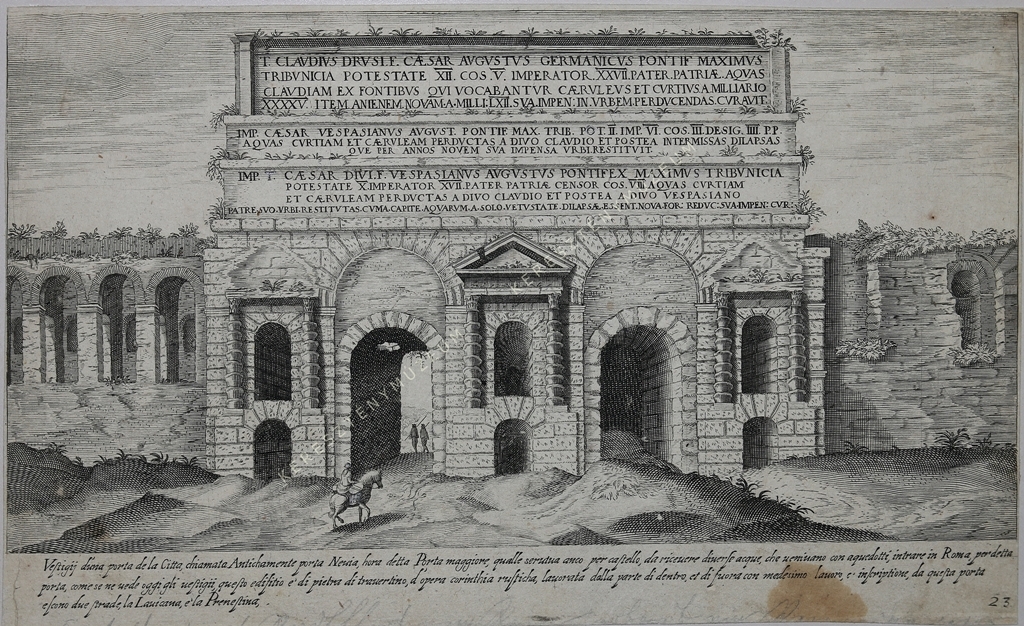 T. CLAVDIVS DRVSI F. CÆSAR AVGVSTVS GERMANICVS PONTIF MAXIMVS
TRIBVNICIA POTESTATE XII. COS .V. IMPERATOR XXVII. PATER. PATRIÆ. AQVAS
CLAVDIAM EX FONTIBVS QVI VOCABANTVR CÆRVLEVS ET CVRTIVS A MILLIARIO
XXXXV ITEM ANIENEM NOVAM. A. MILLI. LXII. SVA. IMPEN. IN. VRBEM. PERDVCENDAS. CVRAVIT.
IMP. CÆSAR VESPASIANVS AVGVST. PONTIF MAX. TRIB. POT. II IMP. VI COS. III. DESIG. IIII P.P.
AQVAS CVRTIAM ET CÆRVLEAM PERDVCTAS A DIVO CLAVDIO ET POSTEA INTERMISSAS DILAPSAS
QVE PER ANNOS NOVEM SVA IMPENSA VRBI. RESTITVIT.
IMP. T. CÆSAR DIVI. F. VESPASIANVS AVGVSTVS PONTIFEX MAXIMVS TRIBVNICIA
POTESTATE X. IMPERATOR XVII. PATER PATRIÆ CENSOR COS. VIII. AQVAS CVRTIAM
ET CÆRVLEAM PERDVCTAS A DIVO CLAVDIO ET POSTEA A DIVO VESPASIANO
PATRE. SVO. VRBI. RESTITVTAS. CVM. A. CAPITE. AQVARVM. A. SOLO. VETVSTATE. DILAPSÆ. ESSENT. NOVA. FOR. REDVC. SVA. IMPEN. CVR.
Vestigij d'una porta de la Citta, chiamata Antichamente porta Nevia, hora detta Porta maggiore, qualle servua anco per castello, da riceuere diuerse acque, che ueniuano con aquedotti, intrare in Roma, per detta
porta, come se ne uede oggi gli uestigij, questo edifitio e' di pietra di trauertino, d'opera corinthia rusticha, lauorata dalla parte di dentro, et di fuora con medesimo lauoro, e inscriptione, da questa porta
escono due strade, la Lauicana, e la Prenestina,
23